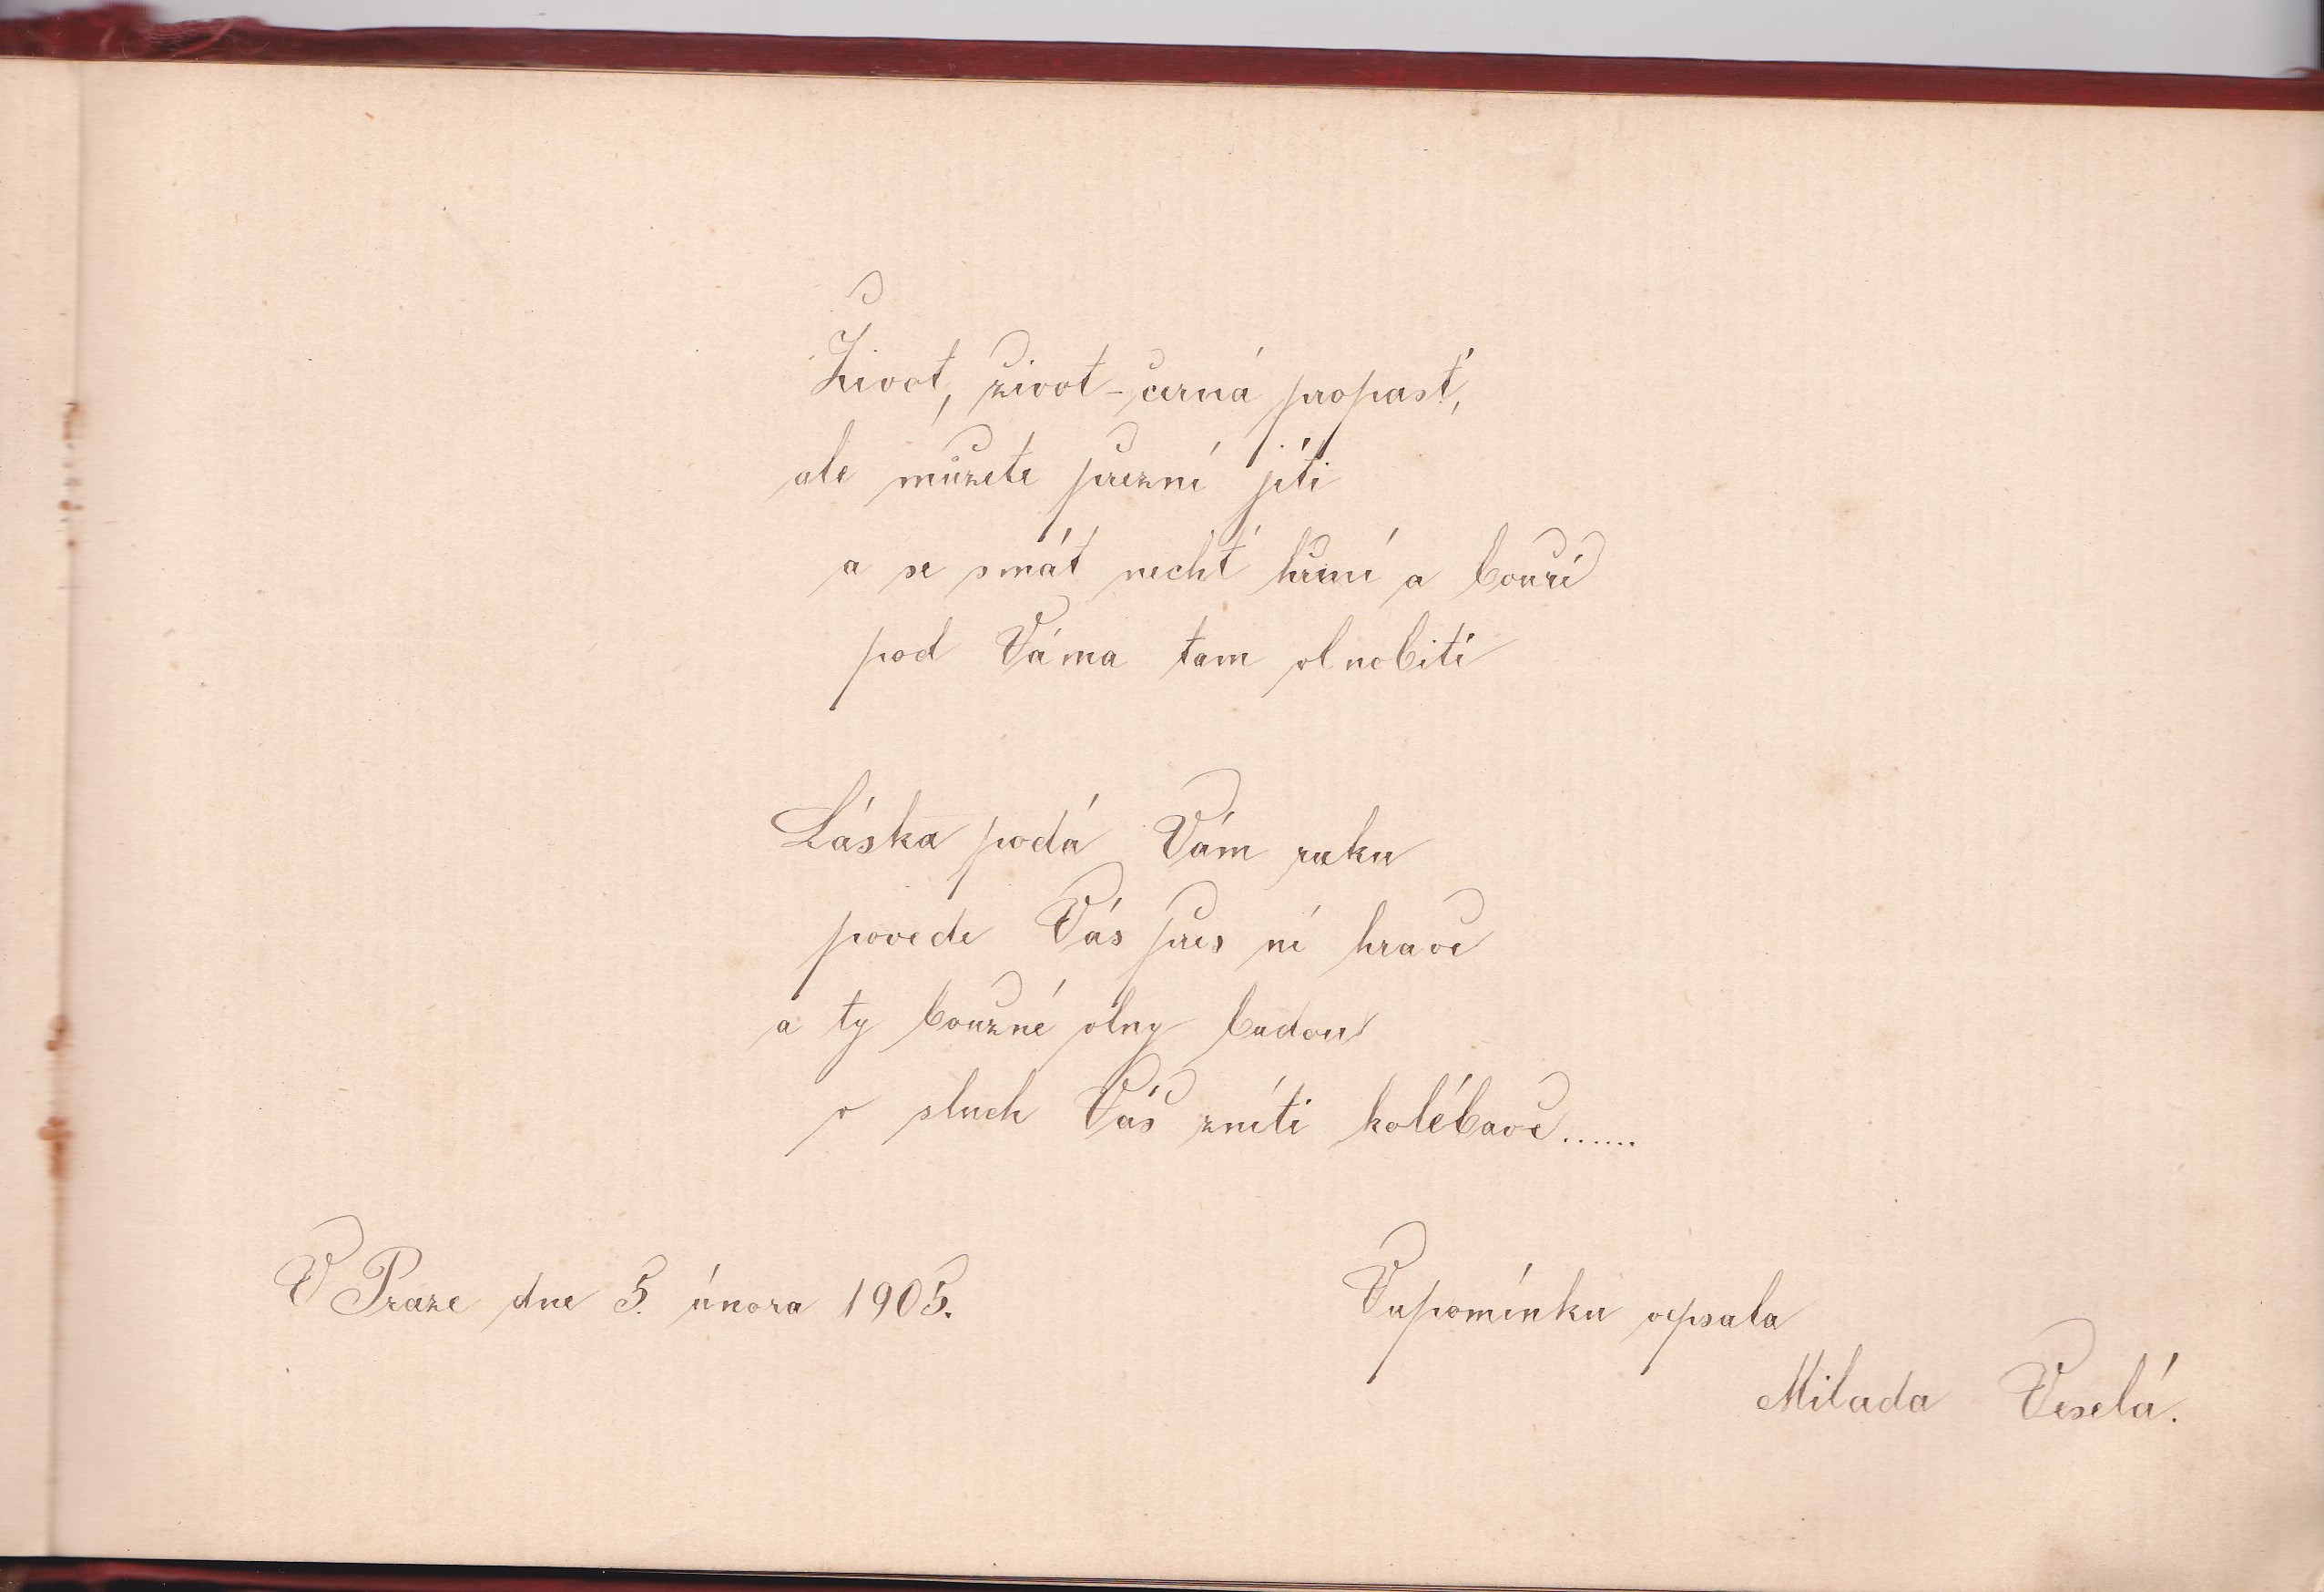 Život, život - černá propasť,
ale můžete přezní jíti
a se smát nechť hřmí a bouří
pod Váma tam vlnobití
Láska podá Vám ruku
povede Vás přes ní hravě
a ty bouřné vlny budou
v sluch Váš zníti kolébavě......
V Praze dne 5. února 1905.
Vupomínku vepsala
Milada Veselá.